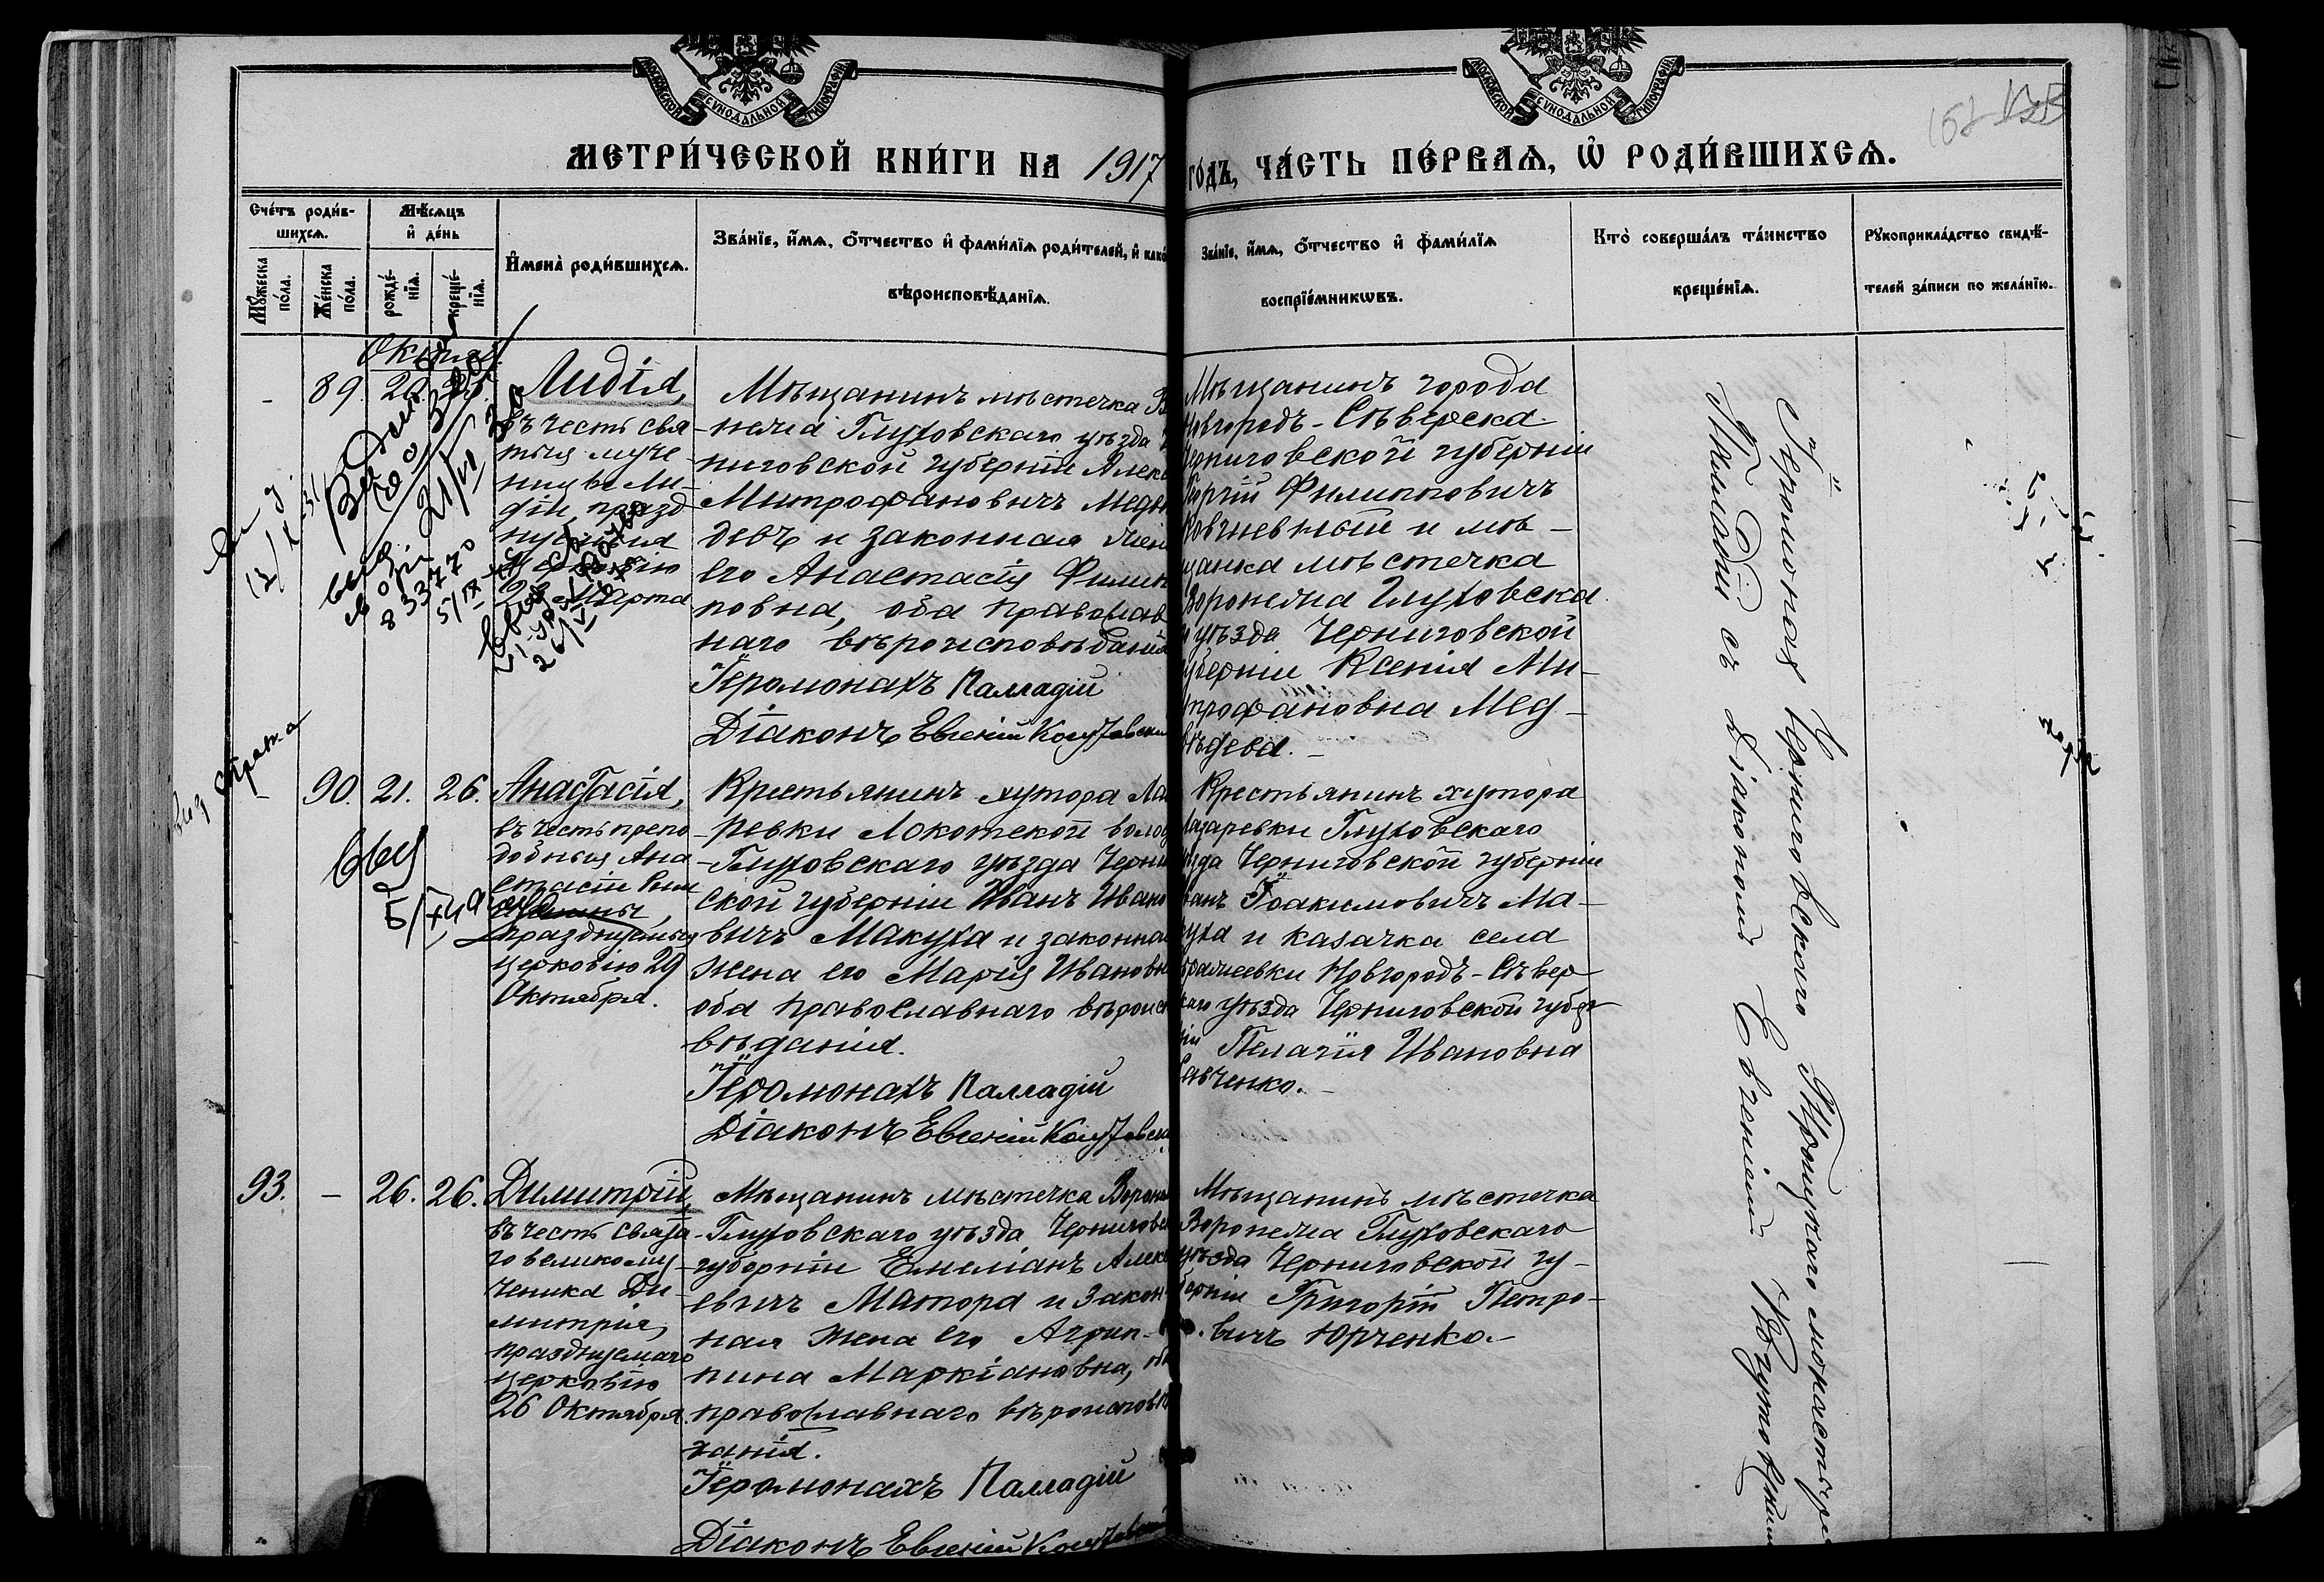 МОСКОВСКОЙ СѴНОДАЛЬНОЙ ТИПОГРАФІИ
МОСКОВСКОЙ СѴНОДАЛЬНОЙ ТИПОГРАФІИ
МЕТРИ́ЧЕСКОЙ КНИ́ГИ НА 1917 ГО́ДЪ, ЧА́СТЬ ПЕ́РВАѦ, Ѡ҆ РОДИ́ВШИХСѦ.
Сче́тъ роди́в-
шихсѧ.
Мѣ́сѧцъ
и҆ де́нь
Мꙋ́жеска
по́ла.
Же́нска
по́ла.
рожде́-
нїѧ.
креще́-
нїѧ.
И҆мена̀ роди́вшихсѧ.
Зва́нїе, и҆́мѧ, ѻ҆́тчество и҆ фами́лїѧ роди́телей, и҆ како
вѣроисповѣ́данїѧ.
Зва́нїе, и҆́мѧ, ѻ҆́тчество и҆ фами́лїѧ
воспрїе́мникѡвъ.
Кто̀ соверша́лъ та́инство
креще́нїѧ.
Рꙋкоприкла́дство свидѣ́-
телей за́писи по жела́нїю.
- 89. 20.
Лидія,
въ честь свя-
тыя муче-
ницы Ли-
діи, празд
нуемыя
Церковію
23 Марта
Мѣщанинъ мѣстечка В
нежа Глуховскаго уѣзда
ниговской губерніи Алекс
Митрофановичъ Медв
девъ и законная жен
его Анастасія Филип
повна, оба православ
наго вѣроисповѣданія
Іеромонахъ Палладій
Діаконъ Евгеній
Мѣщанинъ города
Новгородъ-Сѣверска
Черниговской губерніи
Георгій Филипповичъ
и мѣ-
щанка мѣстечка
Воронежа Глуховска
уѣзда Черниговской
губерніи Ксенія Ми-
трофановна Мед-
вѣдева.-
- 90. 21. 26.
Анастасія,
въ честь препо
добныя Ана
стасіи Рим
празднуемыя
церковію 29
Октября.
Крестьянинъ хутора Ла
ревки Локотской волос
Глуховскаго уѣзда Черни
ской губерніи Иванъ Ивано
вичъ Макуха и законна
жена его Марія Ивановн
оба православнаго вѣроис
вѣданія.
Іеромонахъ Палладій
Діаконъ Евгеній
Крестьянинъ хутора
Лазаревки Глуховскаго
уѣзда Черниговской губерніи
Иванъ Іоакимовичъ Ма-
куха и казачка села
Новгородъ-Сѣвер
скаго уѣзда Черниговской губер
ніи Пелагія Ивановна
Савченко.-
93. - 26. 26.
Димитрій,
въ честь свята-
го великому-
ченика Ди-
митрія,
празднуемаго
церковію
26 Октября.
Мѣщанинъ мѣстечка Вороне
Глуховскаго уѣзда Черниговс
губерніи Емеліанъ Алекс
евичъ Матора и закон-
ная жена его Агрип-
пина Маркіановна, об
православнаго вѣроисповѣ
данія.
Іеромонахъ Палладій
Діаконъ Евгеній
Мѣщанинъ мѣстечка
Воронежа Глуховскаго
уѣзда Черниговской гу-
берніи Григорій Петро-
вичъ Юрченко.-
Іеромонахъ Черниговскаго Троицкаго монастыря
Палладій съ Діакономъ Евгеніемъ